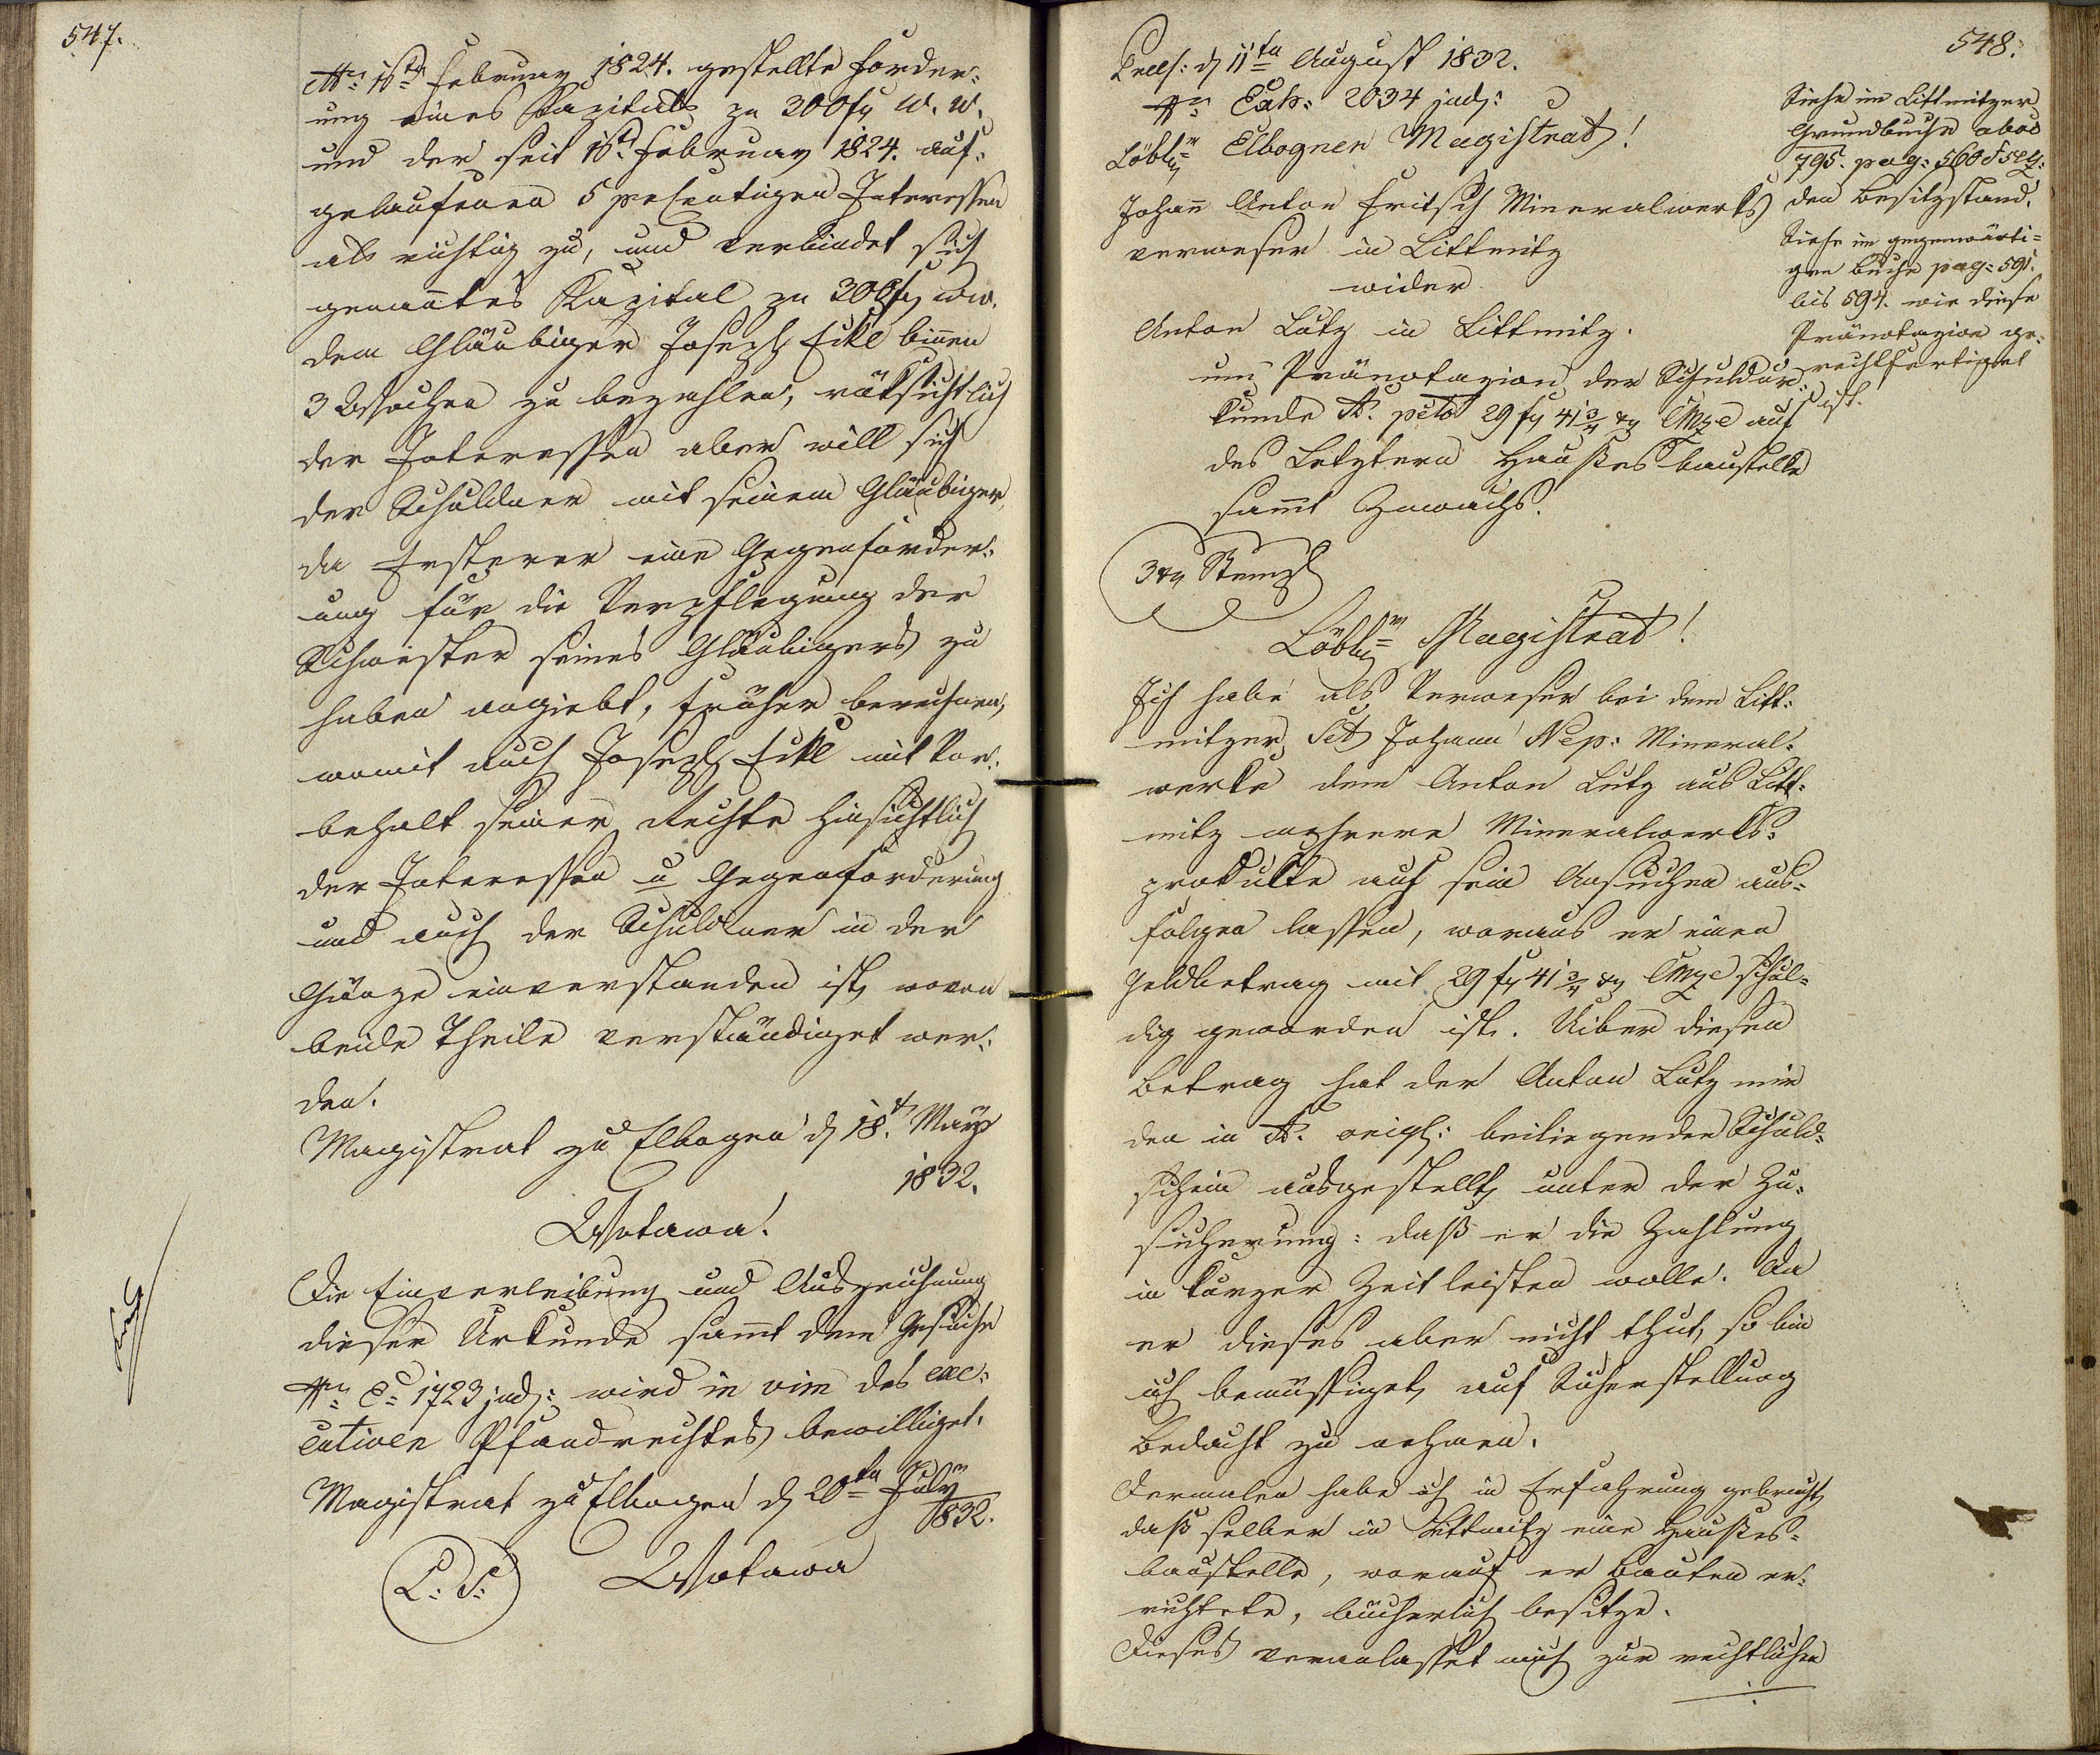 547.
1ten February 1824. gestellte Forder:
ung eines Kapitals zu 300 f W. W.
und der seit 1ten February 1824. auf:
gelaufenen 5 percentigen Interessen
als richtig zu, und verbindet sich
genanntes Kapital zu 300 f WW.
dem Gläubiger Joseph Eckl binnen
3 Wochen zu bezahlen, rücksichtlich
der Interessen aber will sich
der Schuldner mit seinem Gläubiger,
da Ersterer eine Gegenforder:
ung für die Verpflegung der
Schwester seines Gläubigers zu
haben angiebt, früher berechnen,
womit auch Joseph Eckl mit Vor:
behalt seiner Rechte hinsichtlich
der Interessen u Gegenforderung
und auch der Schuldner in der
Gänze einverstanden ist, wovon
beide Theile verständiget wer:
den.
Magistrat zu Elbogen d 18t May
1832.
Wotawa.
Die Einverleibung und Auszeichnung
dieser Urkunde sammt dem Gesuche
E: 1723 jud: wird in vim des exe:
cutiven Pfandrechtes bewilliget.
Magistrat zu Elbogen d 20ten July
1832.
L: S: Wotawa
548.
Praes: d 11ten August 1832.
Exh: 2034 jud:
Löbl: Elbogner Magistrat!
Johann Anton Fritsch Mineralwerks
verweser in Littmitz
wider
Anton Lutz in Littmitz.
um Pränotazion der Schuldur:
kunde A. pcto 29 f 41 3/4 x CMze auf
des Letztern Hausesbaustelle
sammt Zuwachs.
3 x Stempl
Löbl: Magistrat!
Ich habe als Verweser bei dem Litt:
mitzer Sct Johann Nep: Mineral:
werke dem Anton Lutz aus Litt:
mitz mehrere Mineralwerks:
produkte auf sein Ansuchen aus:
folgen lassen, woraus er einen
Geldbetrag mit 29 f 41 3/4 x CMze schul:
dig geworden ist. Uiber diesen
Betrag hat der Anton Lutz mir
den in A. origl: beiliegenden Schuld:
schein ausgestellt, unter der Zu:
sicherung: daß er die Zahlung
in kurzer Zeit leisten wolle. Da
er dieses aber nicht thut, so bin
ich bemüssiget, auf Sicherstellung
Bedacht zu nehmen.
Dermalen habe ich in Erfahrung gebracht,
daß selber in Littmitz eine Hauses:
baustelle, worauf er Bauten er:
richtete, bücherlich besitze.
Dieses veranlasset mich zur rechtlichen
Siehe im Littmitzer
Grundbuche
795. pag: 560 f seq:
den Besitzstand.
Siehe im gegenwärti=
gen Buche pag: 591.
bis 594. wie diese
Pränotazion ge:
rechtfertiget
ist.